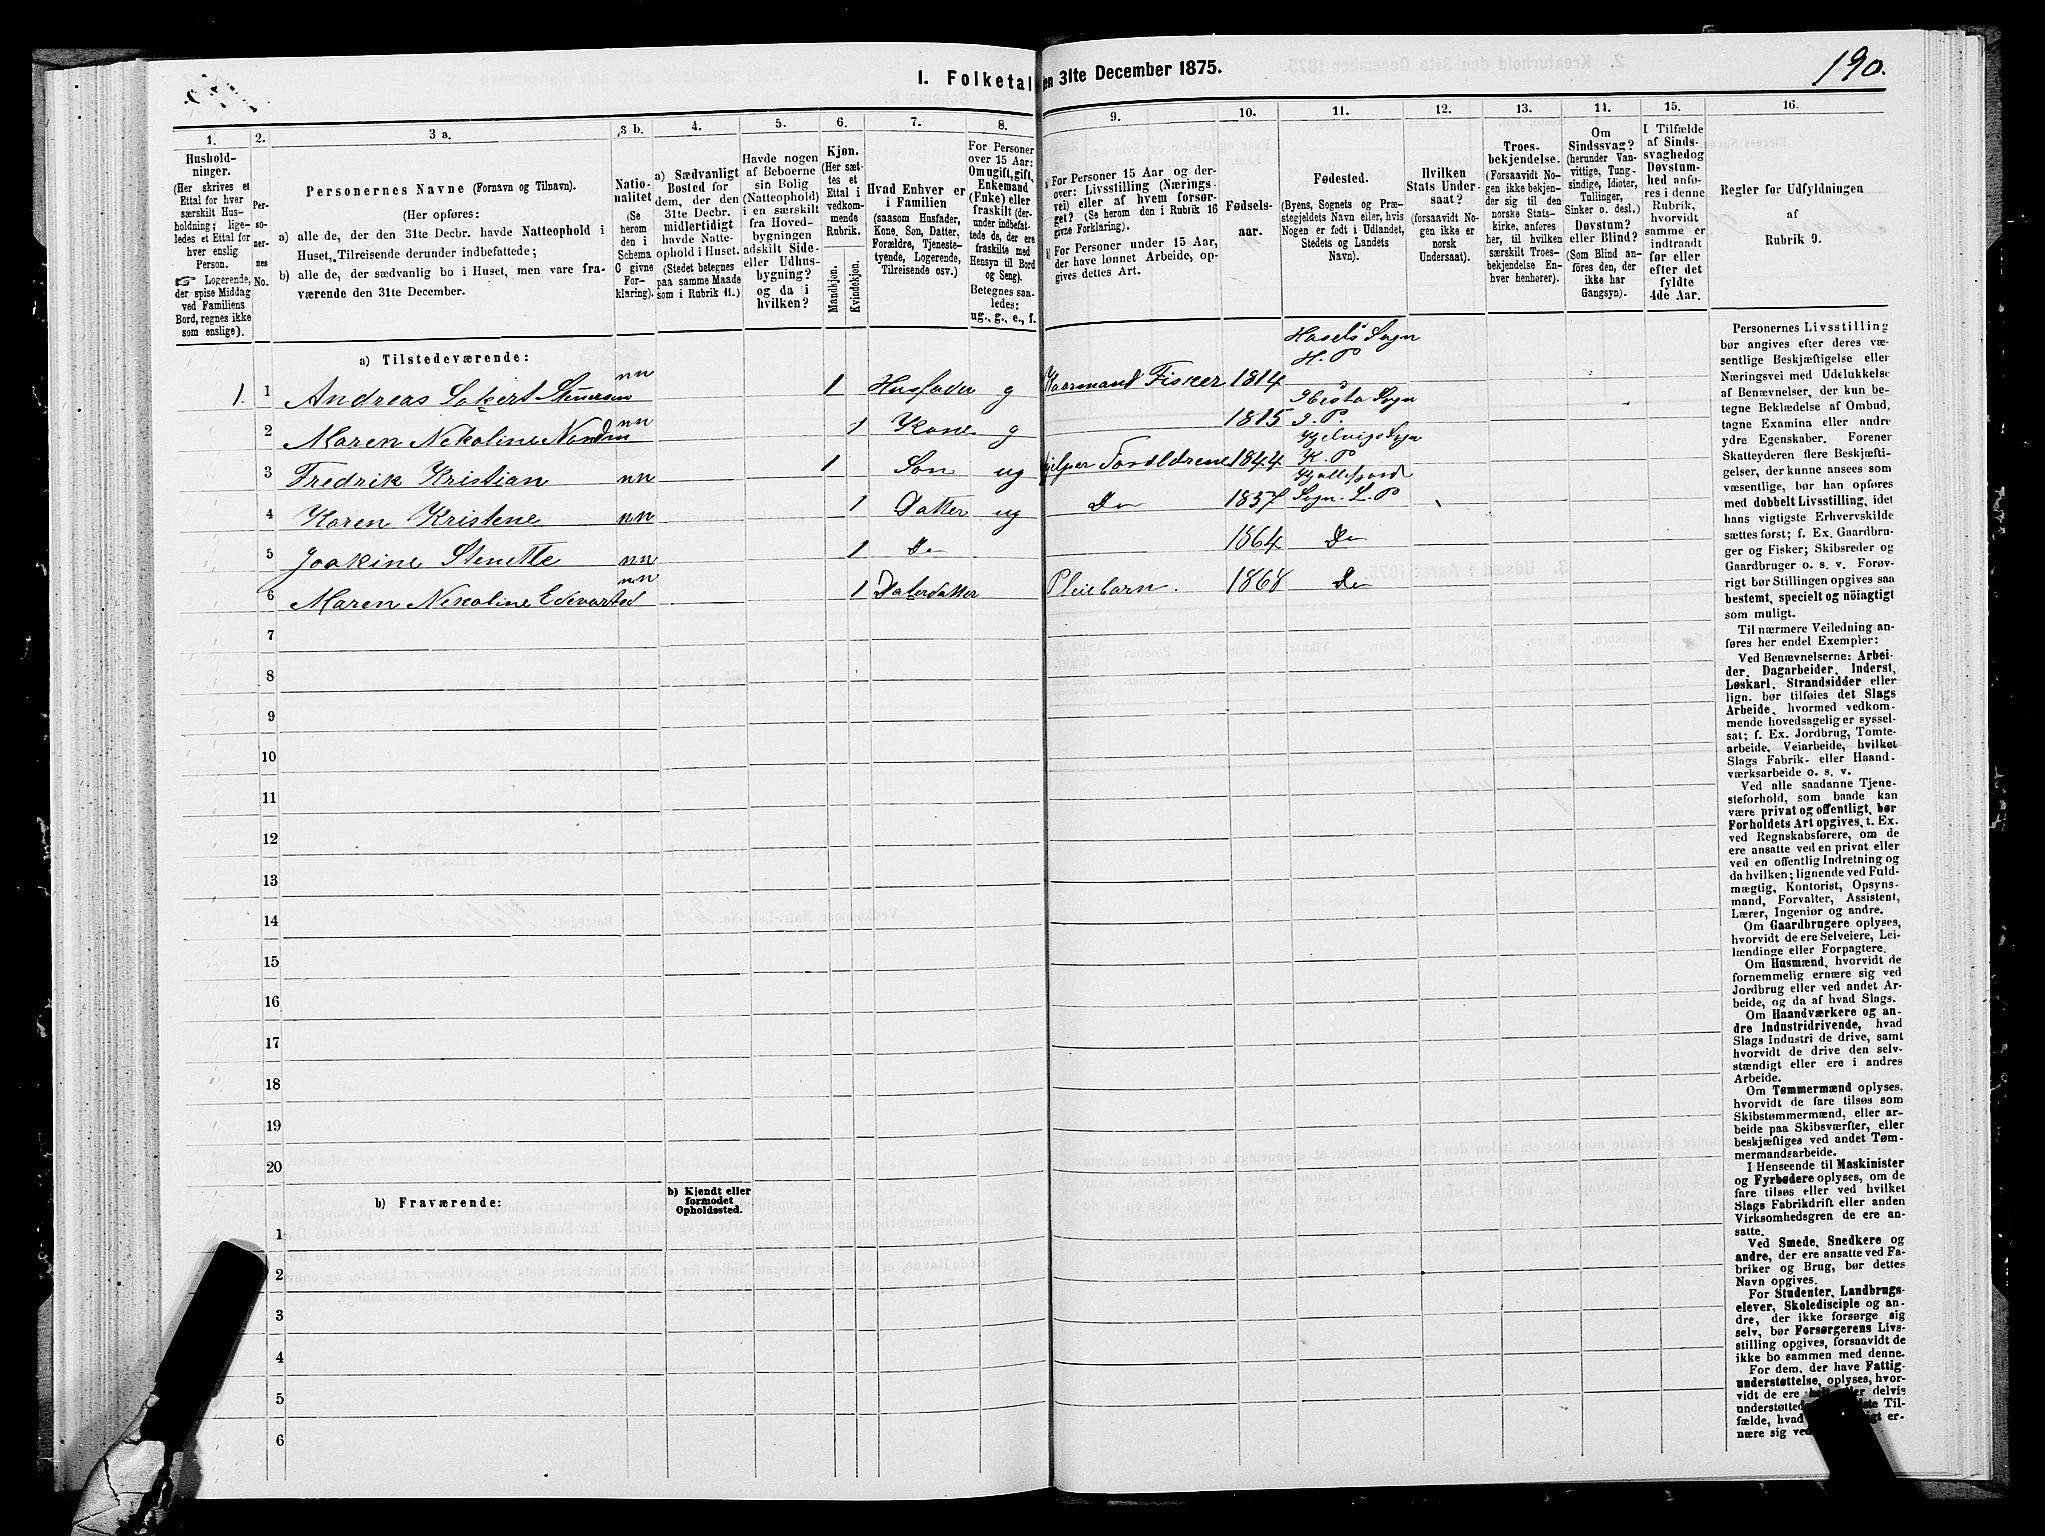 I. Folketal
den 31te December 1875.
190.
1.
Hushold-
ninger.
(Her skrives et
Ettal for hver
særskilt Hus-
holdning; lige-
ledes et Ettal for
hver enslig
Person.
☞ Logerende,
der spise Middag
ved Familiens
Bord, regnes ikke
som enslige).
2.
Per-
so-
ner-
nes
No.
3 a.
Personernes Navne (Fornavn og Tilnavn).
(Her opføres:
a) alle de, der den 31te Decbr. havde Natteophold i
Huset, Tilreisende derunder indbefattede;
b) alle de, der sædvanlig bo i Huset, men vare fra-
værende den 31te December.
3 b.
Natio-
nalitet
(Se
herom
den i
Schema
C givne
For-
klaring).
4.
a) Sædvanligt
Bosted for
dem, der den
31te Decbr.
midlertidigt
havde Natte-
ophold i Huset.
(Stedet betegnes
paa samme Maade
som i Rubrik 11.)
5.
Havde nogen
af Beboerne
sin Bolig
(Natteophold)
i en særskilt
fra Hoved-
bygningen
adskilt Side-
eller Udhus-
bygning?
og da i
hvilken?
6.
Kjøn.
(Her sæt-
tes et
Ettal i
vedkom-
mende
Rubrik.
Mandkjøn.
Kvindekjøn.
7.
Hvad Enhver er
i Familien
(saasom Husfader,
Kone, Søn, Datter,
Forældre, Tjeneste-
tyende, Logerende,
Tilreisende osv.)
8.
For Personer
over 15 Aar:
Om ugift, gift,
Enkemand
(Enke) eller
fraskilt (der-
under indbefat-
tede de, der ere
fraskilte med
Hensyn til Bord
og Seng).
Betegnes saa-
ledes:
ug., g., e., f.
9.
a) For Personer 15 Aar og der-
over: Livsstilling (Nærings-
vei) eller af hvem forsør-
get? (Se herom den i Rubrik 16
givne Forklaring).
b) For Personer under 15 Aar,
der have lønnet Arbeide, op-
gives dettes Art.
10.
Fødsels-
aar.
11.
Fødested.
(Byens, Sognets og Præ-
stegjeldets Navn eller, hvis
Nogen er født i Udlandet,
Stedets og Landets
Navn).
12.
Hvilken
Stats Under-
saat?
(forsaavidt No-
gen ikke er
norsk
Undersaat).
13.
Troes-
bekjendelse.
(Forsaavidt No-
gen ikke bekjen-
der sig til den
norske Stats-
kirke, anføres
her, til hvilken
særskilt Troes-
bekjendelse En-
hver henhører).
14.
Om
Sindssvag?
(herunder Van-
vittige, Tung-
sindige, Idioter,
Tullinger,
Sinker o. desl.)
Døvstum?
eller Blind?
(Som Blind an-
føres den, der
ikke har
Gangsyn).
15.
I Tilfælde
af Sinds-
svaghed og
Døvstum-
hed anfø-
res i denne
Rubrik,
hvorvidt
samme er
indtraadt
før eller
efter det
fyldte
4de Aar.
16.
Regler for Udfyldningen
af
Rubrik 9.
a) Tilstedeværende:
1. 1 Andreas Sakert Stenersen nn 1 Husfader g Gaarmand Fisker 1814 Hasels Sogn H. P
2 Maren Nekoline nn 1 Kone g 1815 Ibesta Sogn I. P.
3 Fredrik Kristian nn 1 Søn ug hjelper Foreldrene 1844 Kjelvigs Sogn K. P
4 Karen Kristene nn 1 Datter ug Do 1857 Kjøllefjord Sogn. L. P
5 Joakine Stenette nn 1 Do 1864 Do
6 Maren Nekoline Edevarsted nn 1 Daterdatter Pleiebarn. 1868 Do
7
8
9
10
11
12
13
14
15
16
17
18
19
20
b) Fraværende:
b) Kjendt eller
formodet
Opholdssted.
1
2
3
4
5
6
Personernes Livsstilling
bør angives efter deres væ-
sentlige Beskjæftigelse eller
Næringsvei med Udelukkelse
af Benævnelser, der kun be-
tegne Beklædelse af Ombud,
tagne Examina eller andre
ydre Egenskaber. Forener
Skatteyderen flere Beskjæfti-
gelser, der kunne ansees som
væsentlige, bør han opføres
med dobbelt Livsstilling, idet
hans vigtigste Erhvervskilde
sættes først; f. Ex. Gaardbru-
ger og Fisker; Skibsreder og
Gaardbruger o. s. v. Forøv-
rigt bør Stillingen opgives saa
bestemt, specielt og nøiagtigt
som muligt.
Til nærmere Veiledning an-
føres her endel Exempler:
Ved Benævnelserne: Arbei-
der, Dagarbeider, Inderst,
Løskarl, Strandsidder eller
lign. bør tilføies det Slags
Arbeide, hvormed vedkom-
mende hovedsagelig er syssel-
sat; f. Ex. Jordbrug, Tomte-
arbeide, Veiarbeide, hvilket
Slags Fabrik- eller Haand-
værksarbeide o. s. v.
Ved alle saadanne Tjene-
steforhold, som baade kan
være privat og offentligt, bør
Forholdets Art opgives, t. Ex.
ved Regnskabsførere, om de
ere ansatte ved en privat eller
ved en offentlig Indretning og
da hvilken; lignende ved Fuld-
mægtig, Kontorist, Opsyns-
mand, Forvalter, Assistent,
Lærer, Ingeniør og andre.
Om Gaardbrugere oplyses,
hvorvidt de ere Selveiere, Lei-
lændinge eller Forpagtere.
Om Husmænd, hvorvidt de
fornemmelig ernære sig ved
Jordbrug eller ved andet Ar-
beide, og da af hvad Slags.
Om Haandværkere og an-
dre Industridrivende, hvad
Slags Industri de drive, samt
hvorvidt de drive den selv-
stændigt eller ere i andres
Arbeide.
Om Tømmermænd oplyses,
hvorvidt de fare tilsøs som
Skibstømmermænd, eller ar-
beide paa Skibsværfter, eller
beskjæftiges ved andet Tøm-
mermandsarbeide.
I Henseende til Maskinister
og Fyrbødere oplyses, om de
fare tilsøs eller ved hvilket
Slags Fabrikdrift eller anden
Virksomhedsgren de ere an-
satte.
Ved Smede, Snedkere og
andre, der ere ansatte ved Fa-
briker og Brug, bør dettes
Navn opgives.
For Studenter, Landbrugs-
elever, Skoledisciple og an-
dre, der ikke forsørge sig
selv, bør Forsørgerens Livs-
stilling opgives, forsaavidt de
ikke bo sammen med denne.
For dem, der have Fattig-
understøttelse, oplyses, hvor-
vidt de ere helt eller delvis
understøttede Til-
fælde, hvad er-
nære sig ved